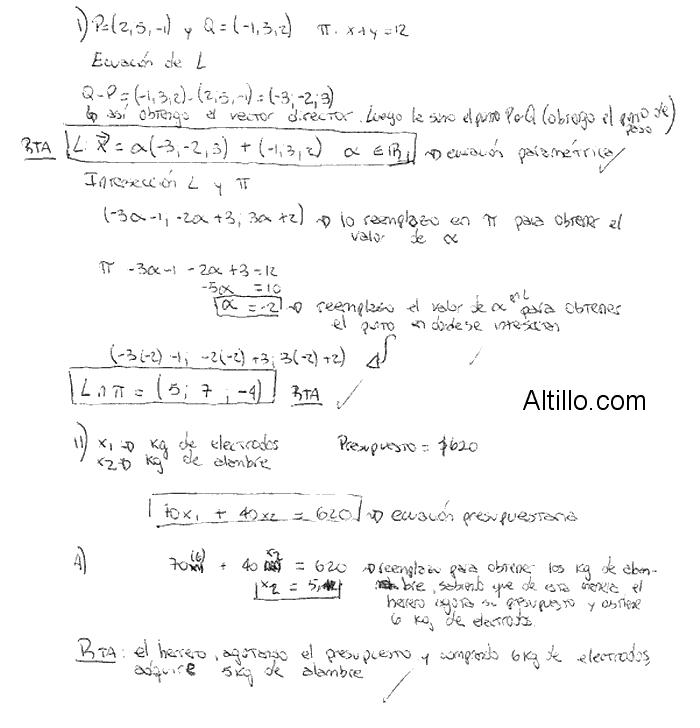 I) P=(2,5,-1) y Q=(-1,3,2) π: x+y=12
Ecuación de L
Q-P=(-1,3,2)-(2,5,-1)=(-3;-2;3)
así obtengo el vector director. Luego le sumo el punto P o Q (obtengo el punto de paso)
RTA L: X = α(-3,-2,3) + (-1,3,2) α ∈ R → ecuación paramétrica
Intersección L y π
(-3α-1, -2α+3; 3α+2) → lo reemplazo en π para obtener el
valor de α
π -3α-1 -2α+3=12
-5α = 10
α = -2 → reemplazo el valor de α en L para obtener
el punto en donde se intersecan
(-3(-2)-1; -2(-2)+3; 3(-2)+2)
L ∩ π = (5; 7; -4) RTA
Altillo.com
II) x1 → kg de electrodos Presupuesto = $620
x2 → kg de alambre
70x1 + 40x2 = 620 → ecuación presupuestaria
A) 70(6) + 40 x2 = 620 → reemplazo para obtener los kg de alam-
x2 = 5 bre, sabiendo que de esta manera el
herrero agota su presupuesto y obtiene
6 kg de electrodos.
RTA: el herrero, agotando el presupuesto y comprando 6kg de electrodos,
adquire 5kg de alambre